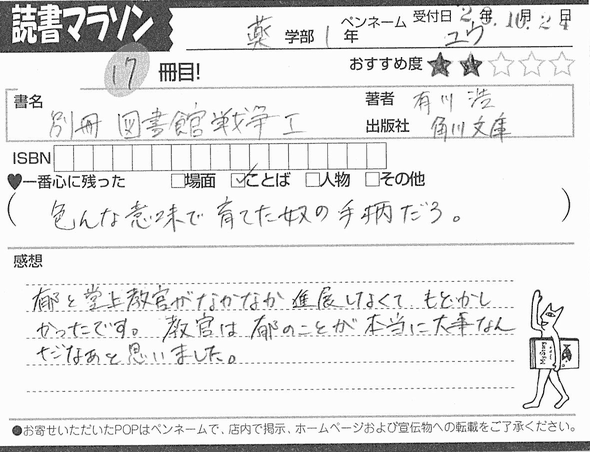 読書マラソン
薬 学部 1 年
ペンネーム ユウ
受付日 年 10月 24日
17 冊目!
おすすめ度 ★★☆☆☆
書名 別冊 図書館戦争 I
著者 有川 浩
出版社 角川文庫
ISBN
♥一番心に残った □場面 ☑ことば □人物 □その他
(色んな意味で育てた奴の手柄だろ。)
感想
郁と堂上教官がなかなか進展しなくて もどかし
かったです。教官は郁のことが本当に大事なん
だなあと思いました。
●お寄せいただいたPOPはペンネームで、店内で掲示、ホームページおよび宣伝物への転載をご了承ください。